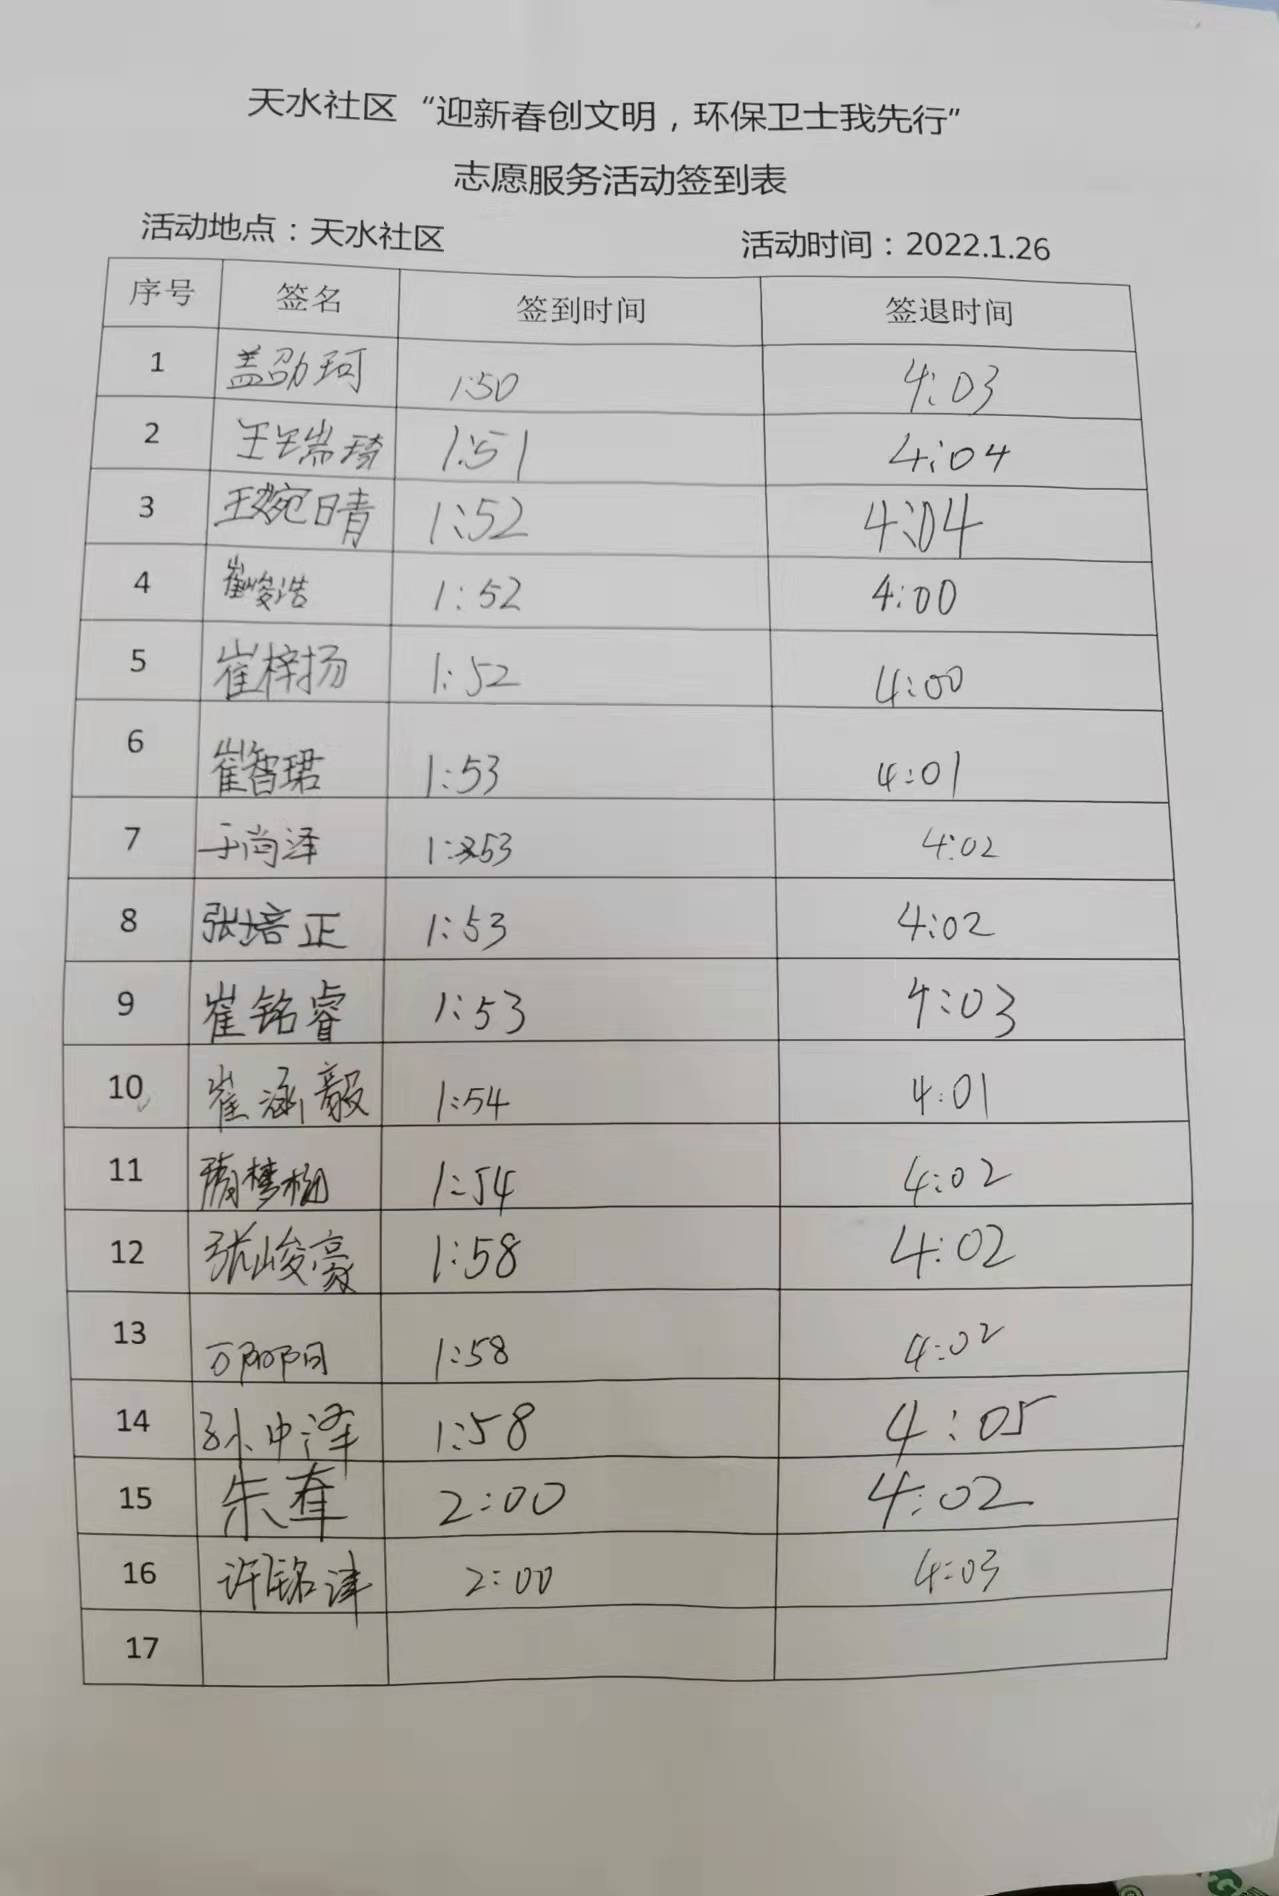 天水社区“迎新春创文明，环保卫士我先行”
志愿服务活动签到表
活动地点：天水社区 活动时间：2022.1.26
序号 签名 签到时间 签退时间
1 盖劭珂 1:50 4:03
2 王瑞琦 1:51 4:04
3 王婉晴 1:52 4:04
4 崔峻浩 1:52 4:00
5 崔梓扬 1:52 4:00
6 崔智珺 1:53 4:01
7 于尚泽 1:53 4:02
8 张培正 1:53 4:02
9 崔铭睿 1:53 4:03
10 崔涵毅 1:54 4:01
11 隋梦 1:54 4:02
12 张峻豪 1:58 4:02
13 万阳 1:58 4:02
14 孙中泽 1:58 4:05
15 朱 2:00 4:02
16 许铭 2:00 4:03
17